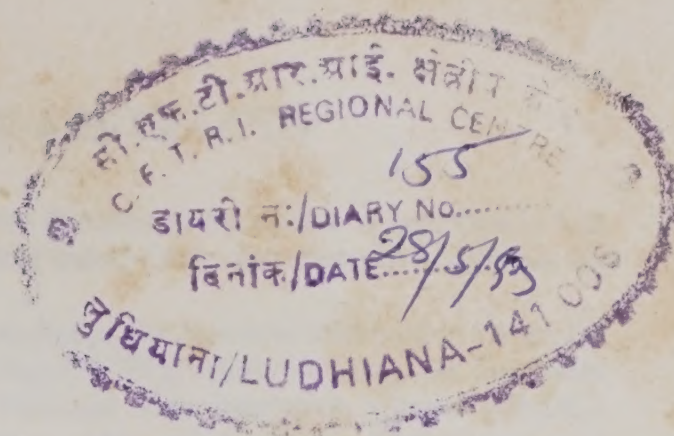 सी.एफ.टी.आर.आई. क्षेत्रीय
C. F. T. R. I. REGIONAL CENTRE
155
डायरी नः/DIARY NO..........
दिनांक/DATE 28/5/
लुधियाना/LUDHIANA-141 005